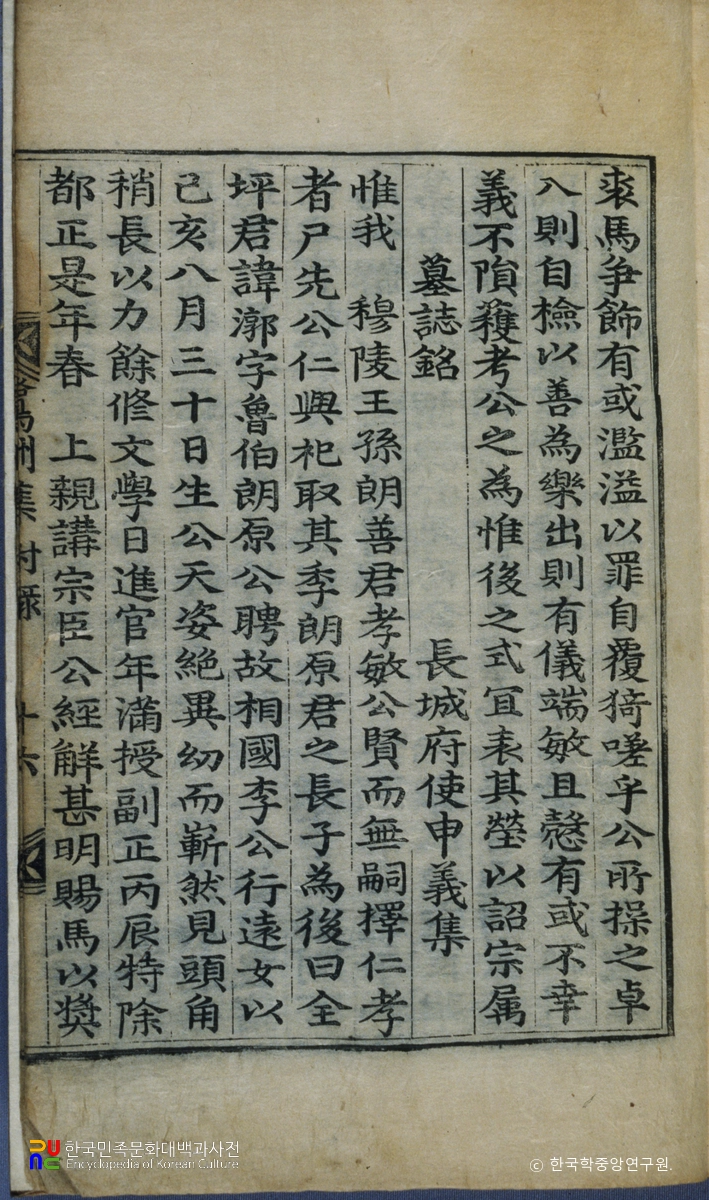 裘馬爭飾有或濫溢以罪自覆猗嗟乎公所操之卓
入則自檢以善為樂出則有儀端敏且愨有或不幸
義不隕穫考公之為惟後之式冝表其塋以詔宗属
墓誌銘 長城府使申義集
惟我 穆陵王孫朗善君孝敏公賢而無嗣擇仁孝
者尸先公仁興祀取其季朗原君之長子為後曰全
坪君諱漷字魯伯朗原公聘故相國李公行遠女以
己亥八月三十日生公天姿絶異幼而嶄然見頭角
稍長以力餘修文學日進官年滿授副正丙辰特除
都正是年春 上親講宗臣公經解甚明賜馬以奬
洲集 附錄 十六
한국민족문화대백과사전
Encyclopedia of Korean Culture
ⓒ 한국학중앙연구원.